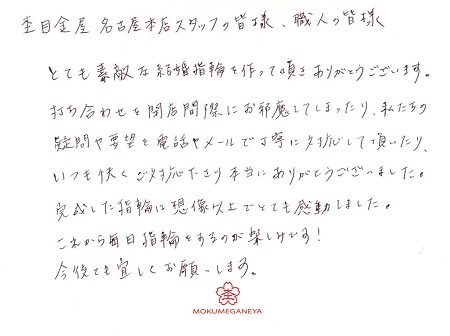 杢目金屋 名古屋本店スタッフの皆様、職人の皆様
とても素敵な結婚指輪を作って頂きありがとうございます。
打ち合わせを閉店間際にお邪魔してしまったり、私たちの
疑問や要望を電話やメールで丁寧に対応して頂いたり、
いつも快くご対応下さり本当にありがとうございました。
完成した指輪は想像以上でとても感動しました。
これから毎日指輪をするのが楽しみです!
今後とも宜しくお願いします。
杢
MOKUMEGANEYA